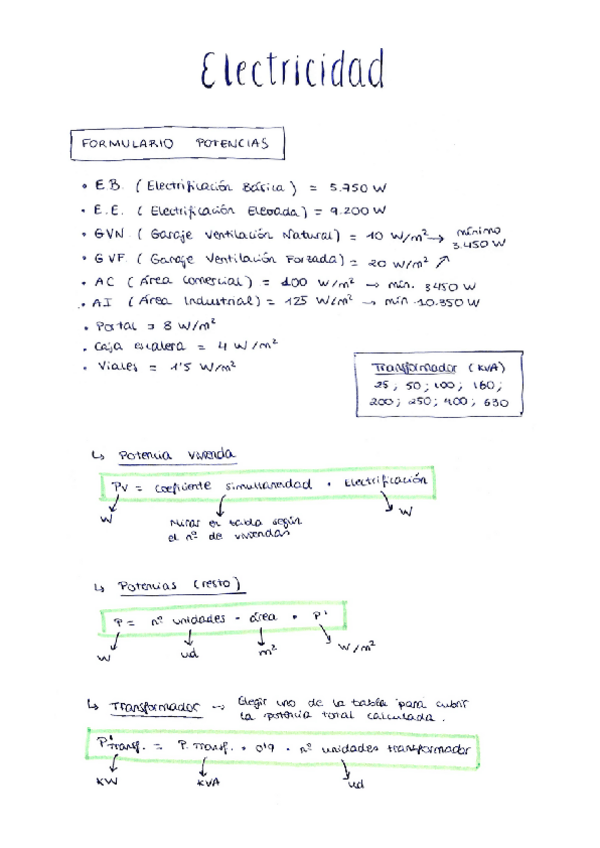 Electricidad
FORMULARIO POTENCIAS
• E.B. (Electrificación Básica) = 5.750 W
• E.E. (Electrificación Elevada) = 9.200 W
• GVN (Garaje Ventilación Natural) = 10 W/m² → mínimo 3.450 W
• GVF (Garaje Ventilación Forzada) = 20 W/m² ↗
• AC (Área Comercial) = 100 W/m² → mín. 3450 W
• AI (Área Industrial) = 125 W/m² → mín. 10.350 W
• Portal = 8 W/m²
• Caja escalera = 4 W/m²
• Viales = 1'5 W/m²
Transformador (KVA)
25; 50; 100; 160;
200; 250; 400; 630
↳ Potencia vivienda
PV = coeficiente simultaneidad · Electrificación
W
Mirar en tabla según
el nº de viviendas
W
↳ Potencias (resto)
P = nº unidades · área · P'
W ud m² W/m²
↳ Transformador → Elegir uno de la tabla para cubrir
la potencia total calculada.
P'transf. = P. Transf. · 0'9 · nº unidades transformador
KW KVA ud